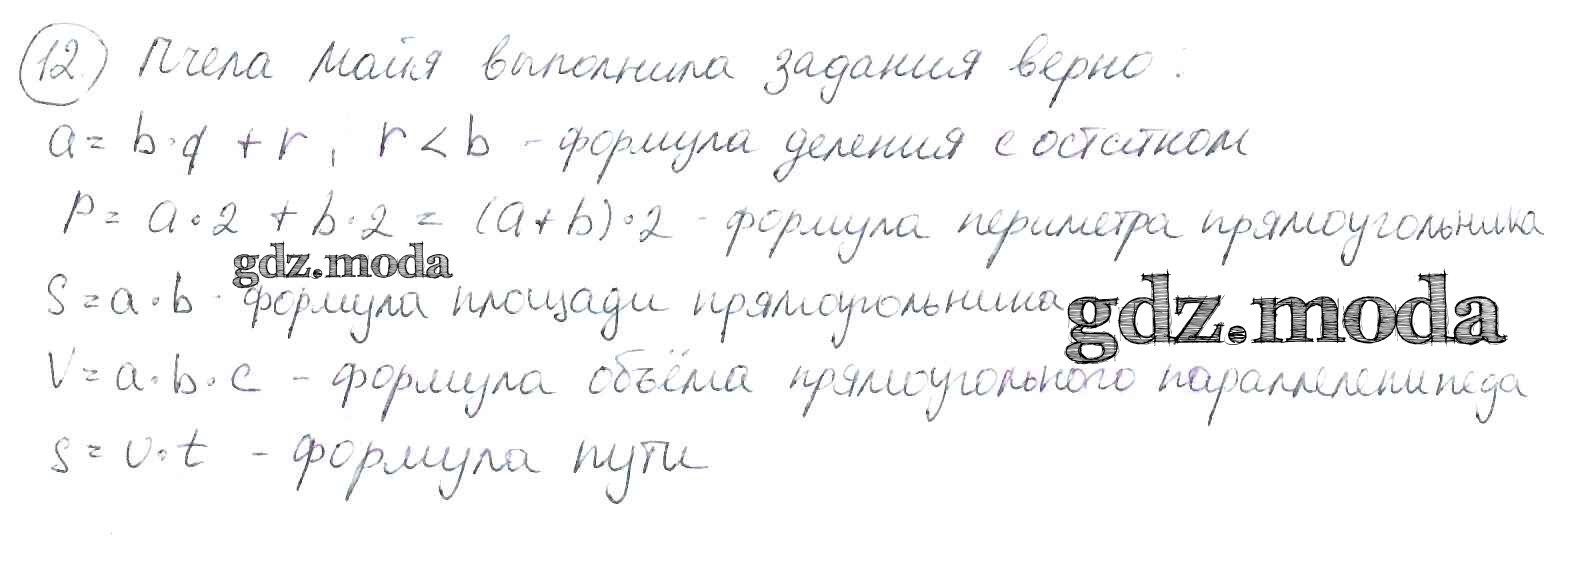 12. Пчела Майя выполнила задания верно:
a = b · q + r, r < b - формула деления с остатком
P = a · 2 + b · 2 = (a + b) · 2 - формула периметра прямоугольника
gdz.moda
S = a · b - формула площади прямоугольника
gdz.moda
V = a · b · c - формула объёма прямоугольного параллелепипеда
s = v · t - формула пути